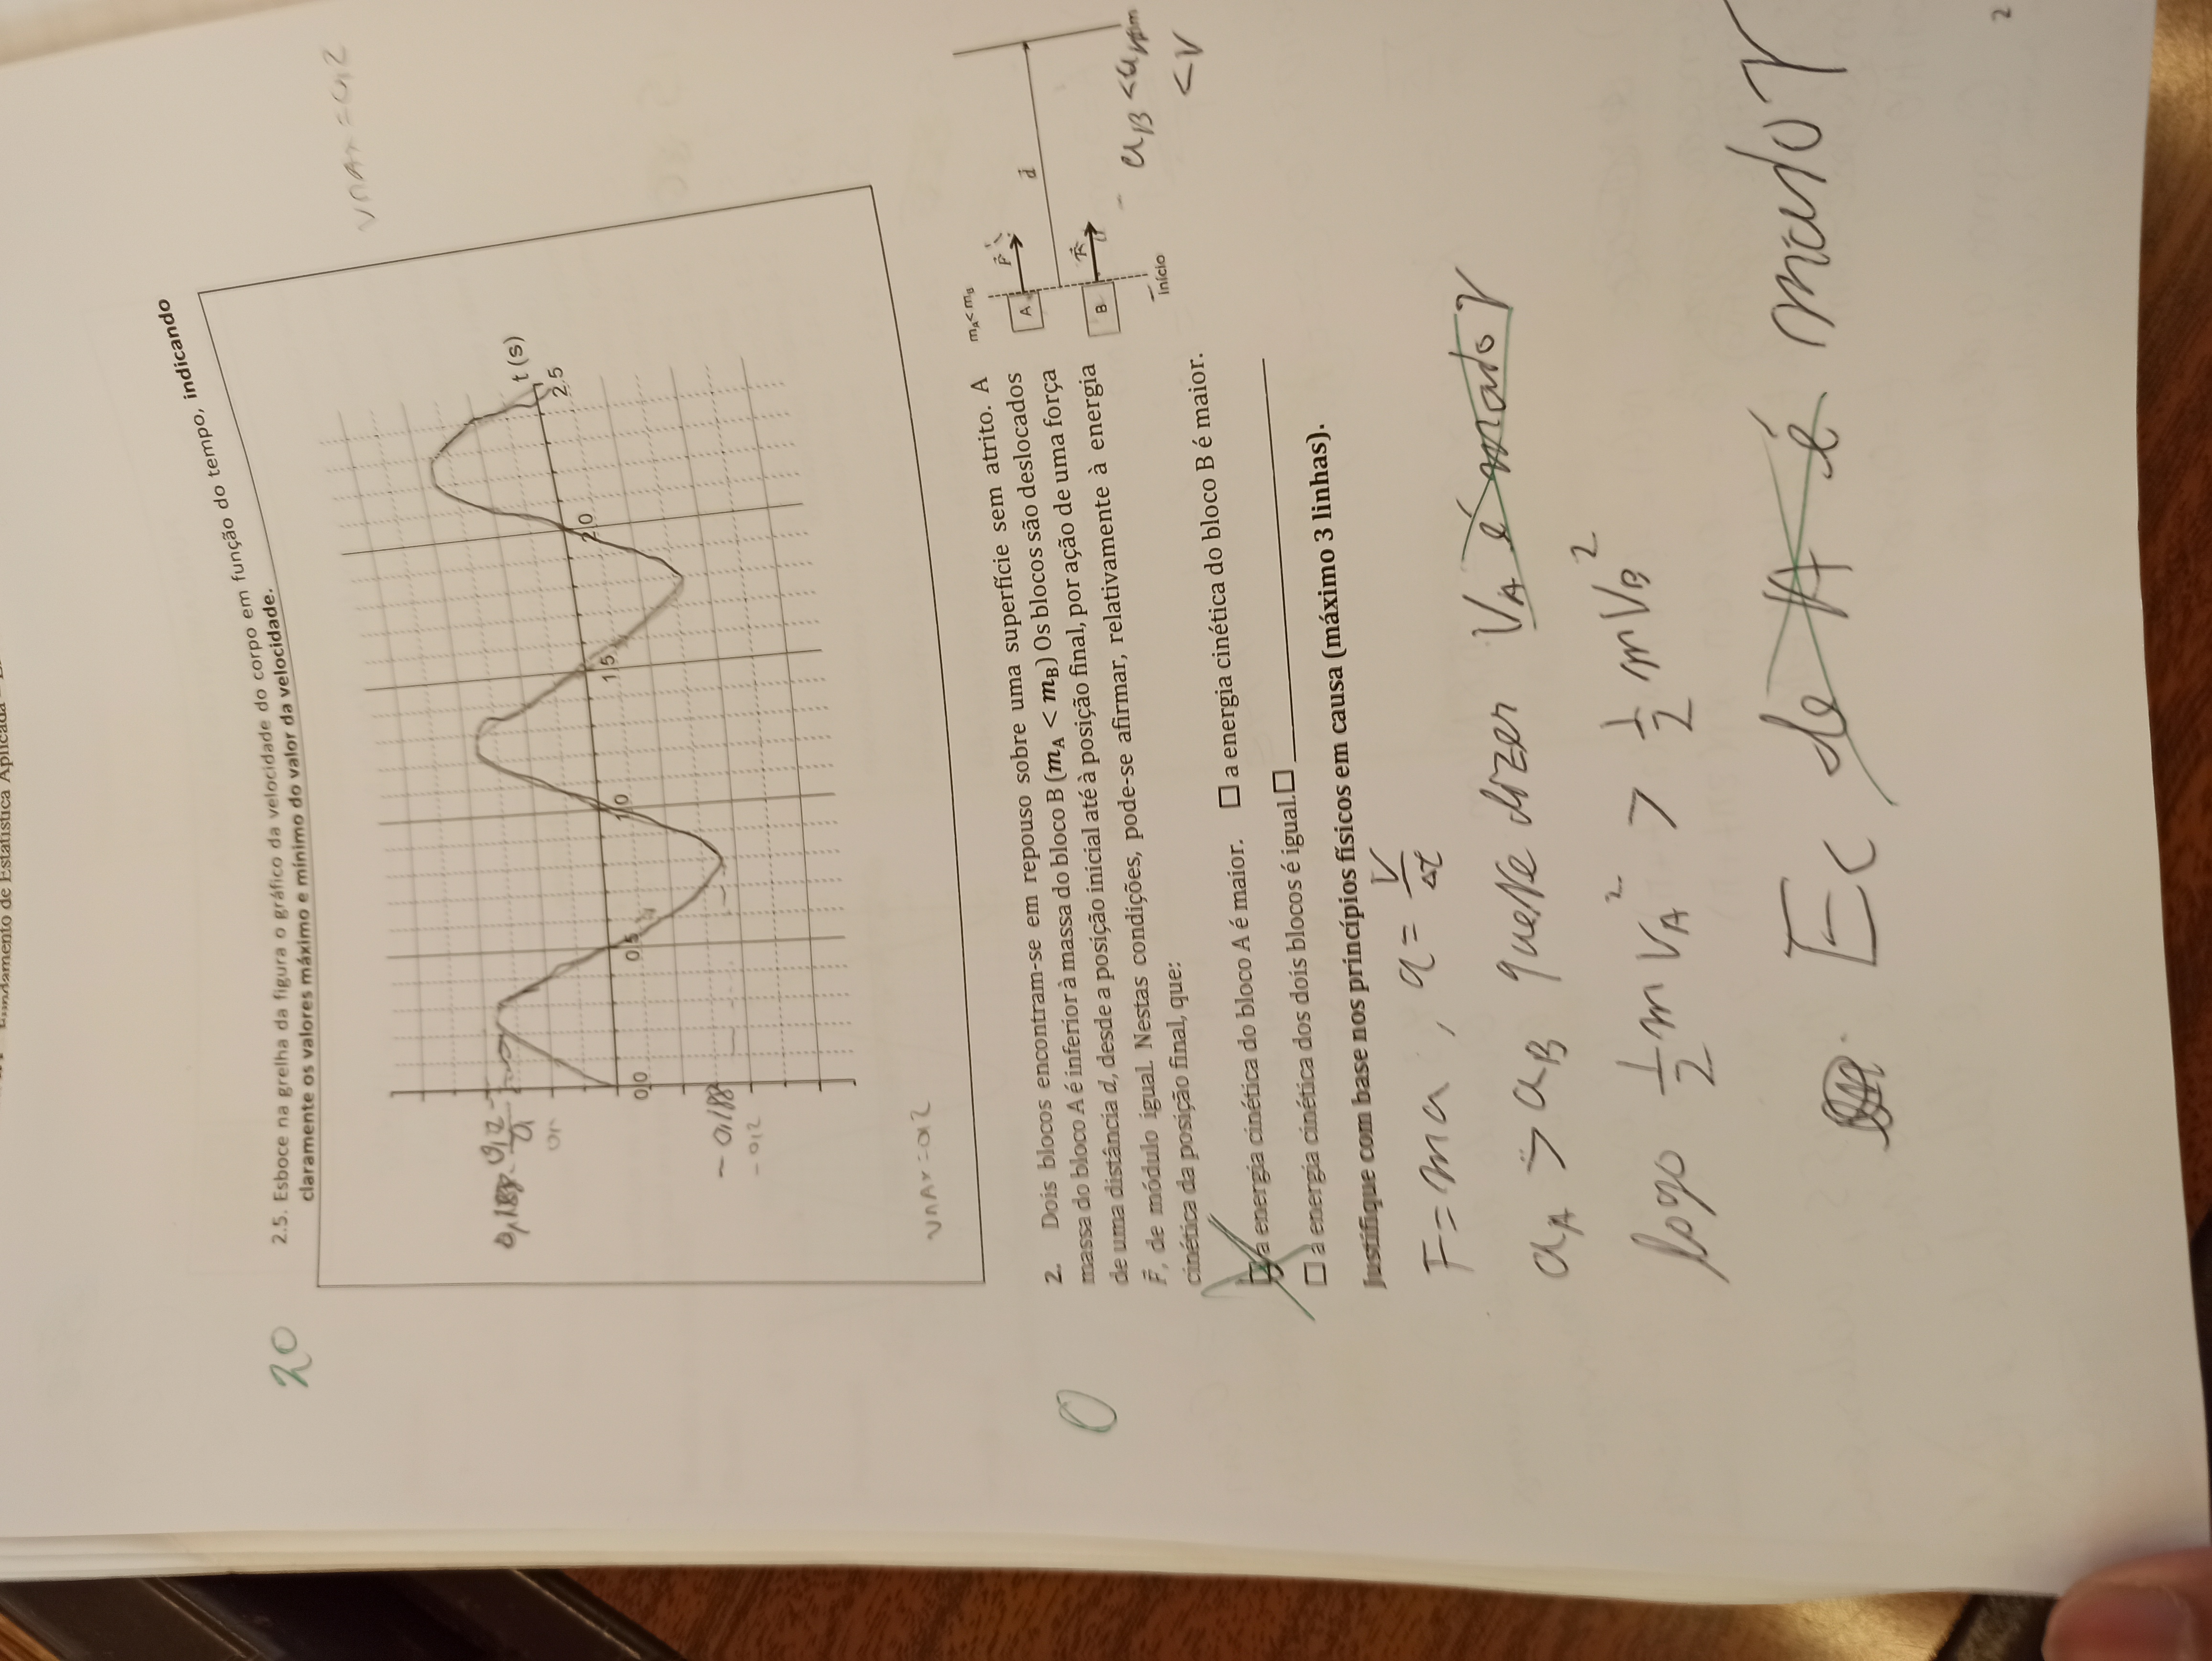 Fundamento de Estatística Aplicada
20
2.5. Esboce na grelha da figura o gráfico da velocidade do corpo em função do tempo, indicando
claramente os valores máximo e mínimo do valor da velocidade.
vmax=0,2
0,188
0,2
t (s)
0,0
0,5
1,0
1,5
2,0
2,5
-0,188
-0,2
vmax=0,2
0
2. Dois blocos encontram-se em repouso sobre uma superfície sem atrito. A
massa do bloco A é inferior à massa do bloco B (mA < mB) Os blocos são deslocados
de uma distância d, desde a posição inicial até à posição final, por ação de uma força
F⃗, de módulo igual. Nestas condições, pode-se afirmar, relativamente à energia
cinética da posição final, que:
mA< mB
A F⃗
d⃗
B F⃗
início
aB <a
<v
☐ a energia cinética do bloco A é maior. ☐ a energia cinética do bloco B é maior.
☐ a energia cinética dos dois blocos é igual.☐ ____________
Justifique com base nos princípios físicos em causa (máximo 3 linhas).
F=ma , a= V/Δt
aA > aB dizer VA é maior
logo 1/2 m VA² > 1/2 m VB²
Ec de A é maior
2